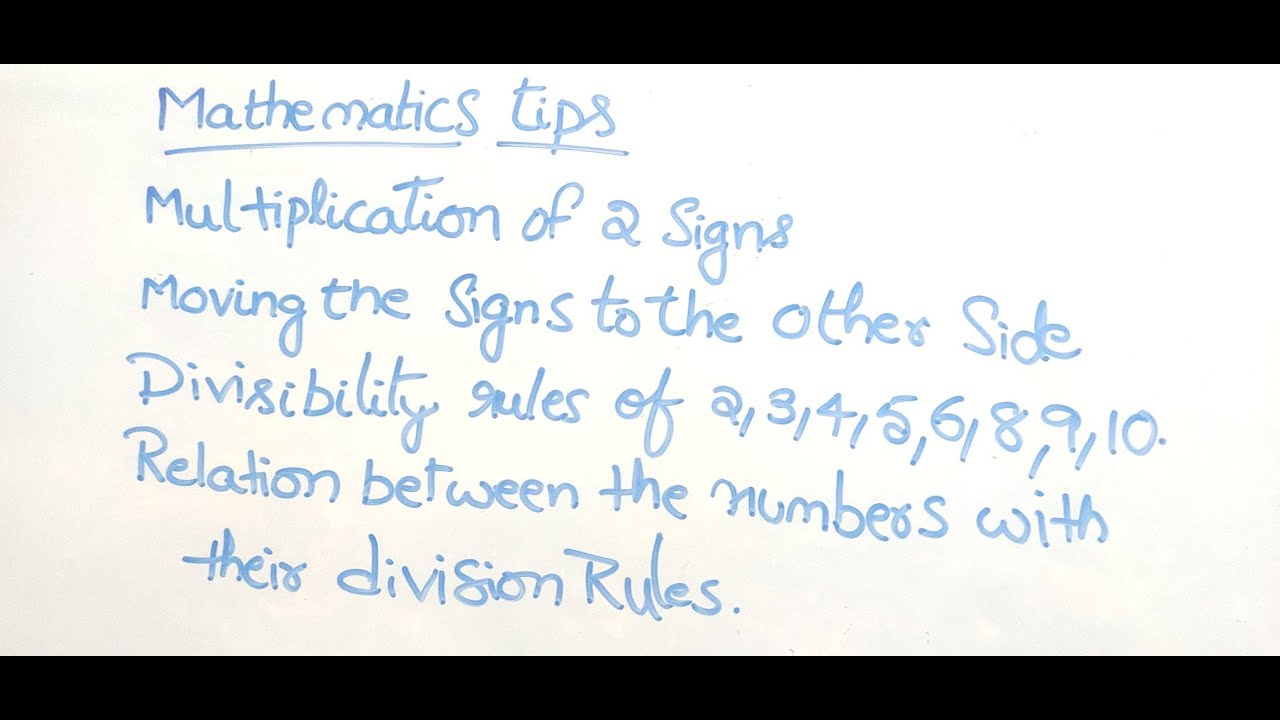 Mathematics tips
Multiplication of 2 Signs
Moving the Signs to the other Side
Divisibility rules of 2,3,4,5,6,8,9,10.
Relation between the numbers with
their division Rules.